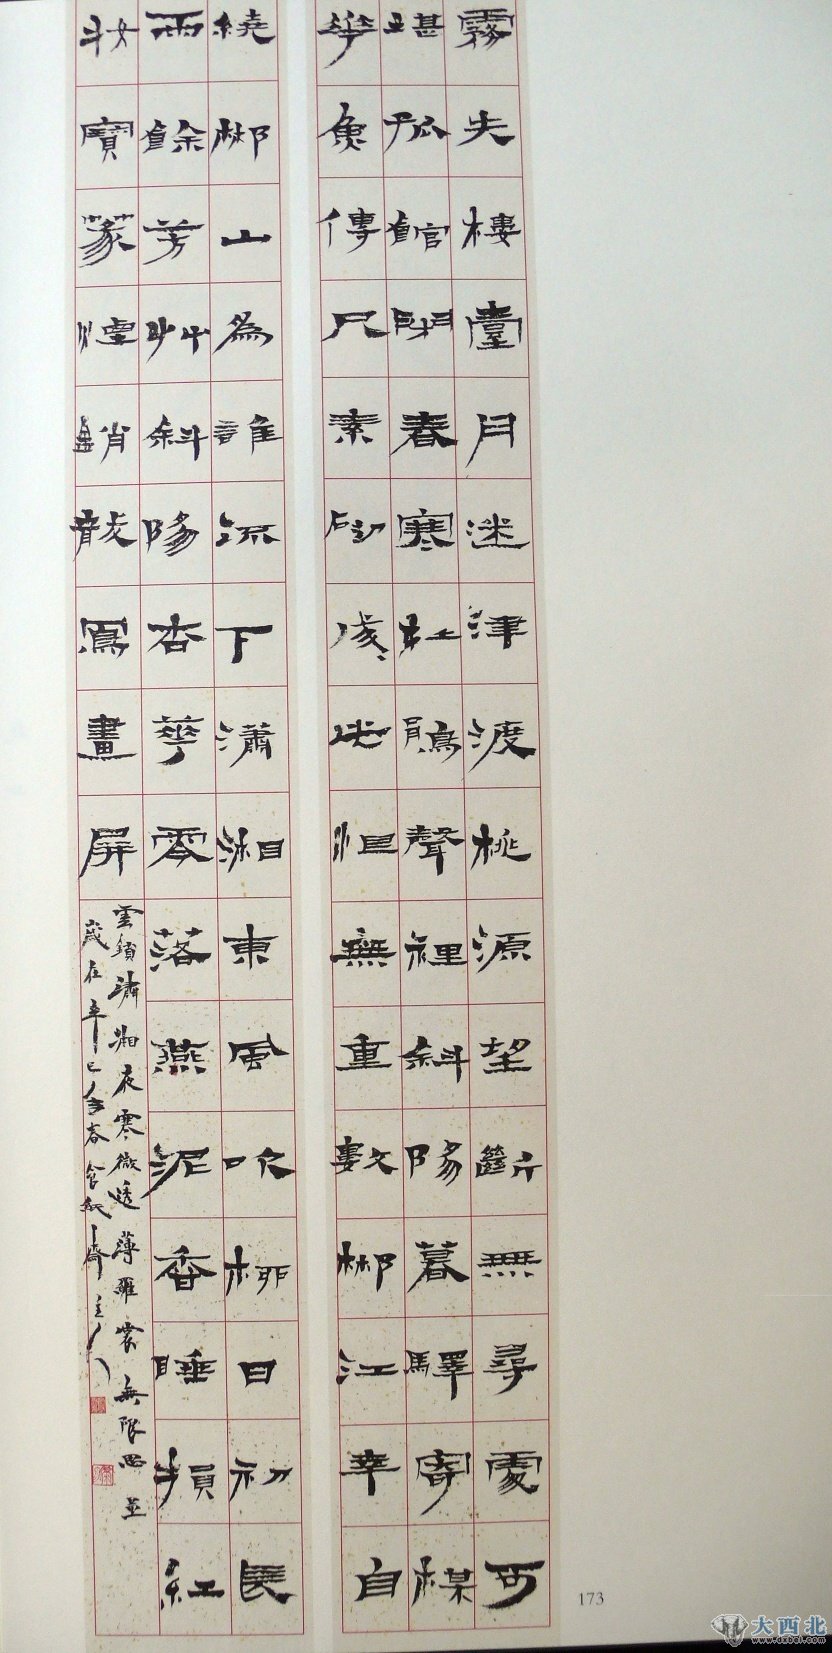 霧失樓臺月迷津渡桃源望斷無尋處可
堪孤館閉春寒杜鵑聲裡斜陽暮驛寄楳
華魚傳尺素砌成此恨無重數郴江幸自
繞郴山為誰流下瀟湘東風吹柳日初長
雨餘芳艸斜陽杏華零落燕泥香睡損紅
妝寶篆煙銷龍鳳畫屏
雲鎖瀟湘夜寒微透薄羅裳無限思 並
歲在辛巳年春齋主人
173
大西北
www.dxbei.com